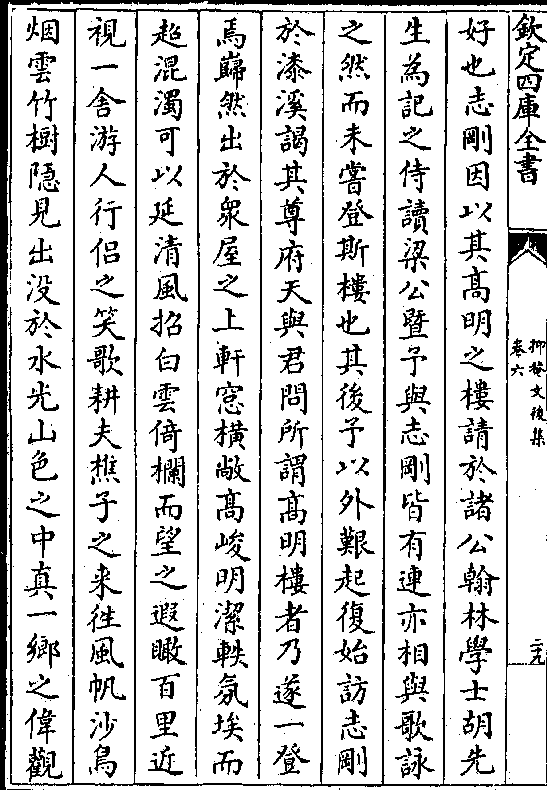 欽定四庫全書
抑菴文後集
卷六
二九
好也志剛因以其髙明之樓請於諸公翰林學士胡先
生為記之侍讀梁公暨予與志剛皆有連亦相與歌詠
之然而未嘗登斯樓也其後予以外艱起復始訪志剛
於漆溪謁其尊府天與君問所謂髙明樓者乃遂一登
焉巋然出於衆屋之上軒窓横敞髙峻明潔軼氛埃而
超混濁可以延清風招白雲倚欄而望之遐瞰百里近
視一舍游人行侣之笑歌耕夫樵子之来徃風帆沙鳥
烟雲竹樹隠見出没於水光山色之中真一鄉之偉觀